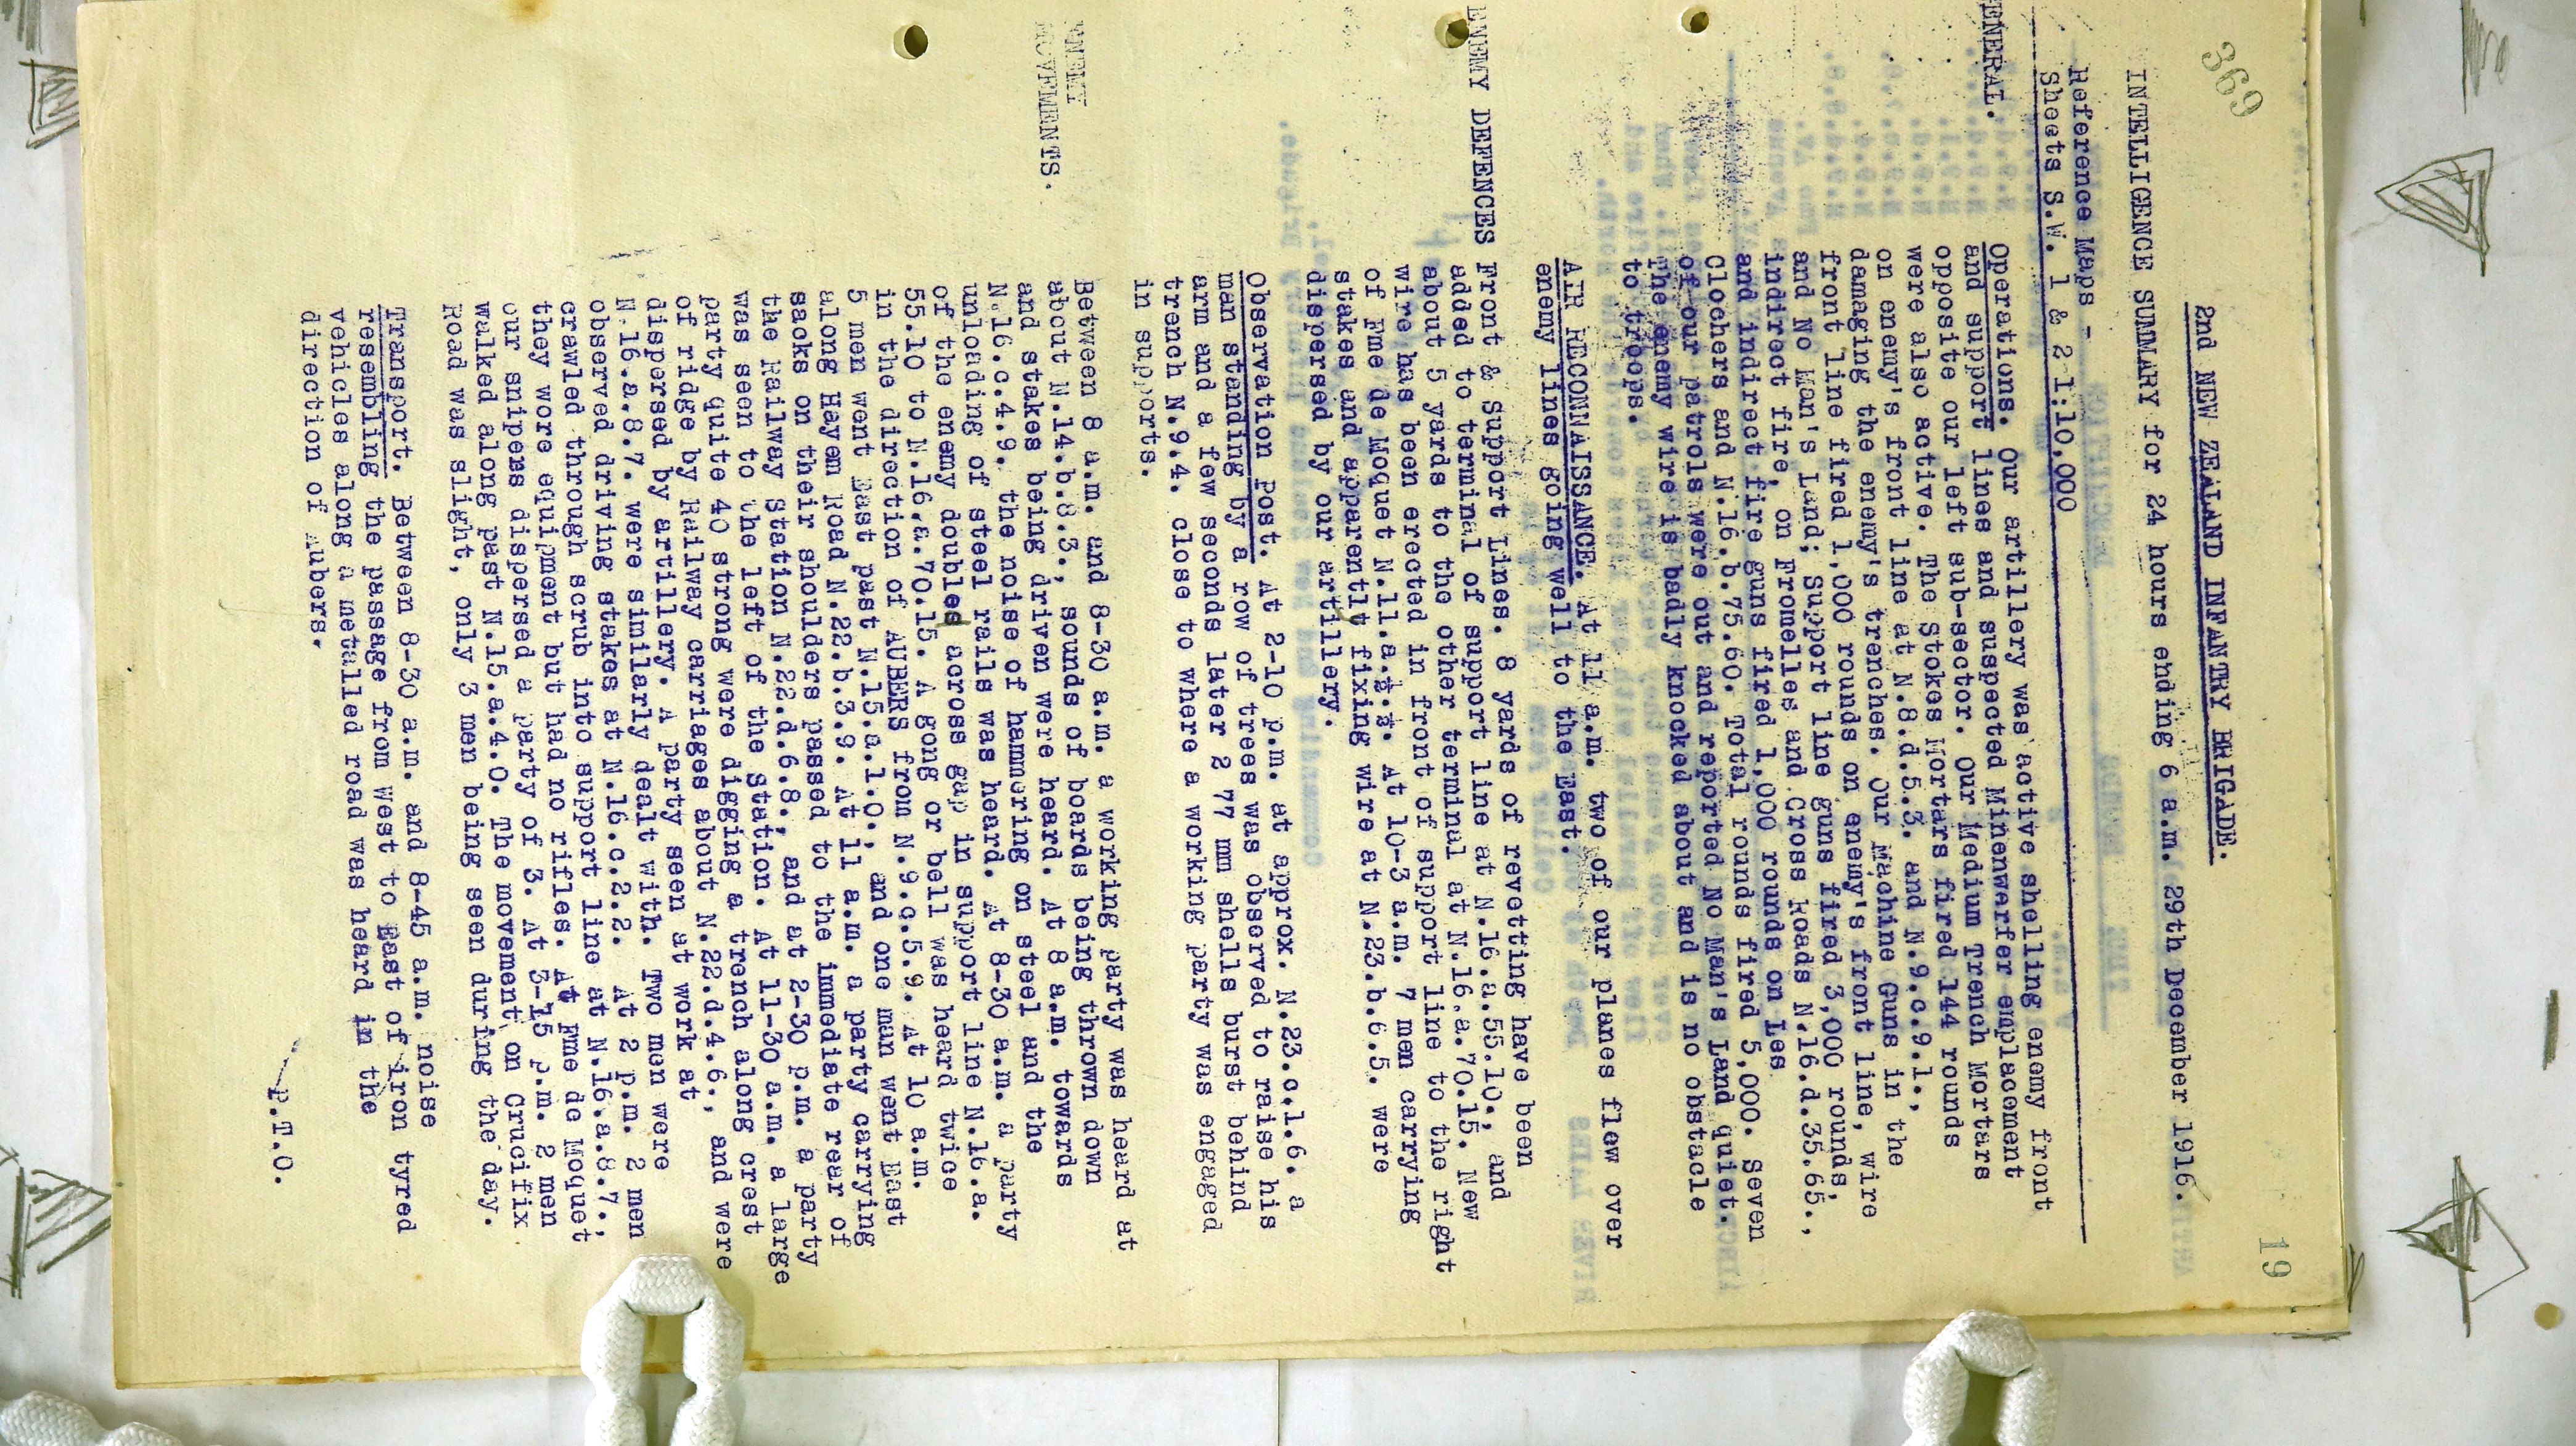 369
19
2nd NEW ZEALAND INFANTRY BRIGADE.
INTELLIGENCE SUMMARY for 24 hours ending 6 a.m. 29th December 1916.
Reference Maps -
Sheets S.W. 1 & 2 1:10,000
GENERAL. Operations. Our artillery was active shelling enemy front
and support lines and suspected Minenwerfer emplacement
opposite our left sub-sector. Our Medium Trench Mortars
were also active. The Stokes Mortars fired 144 rounds
on enemy's front line at N.8.d.5.3. and N.9.c.9.1.,
damaging the enemy's trenches. Our Machine Guns in the
front line fired 1,000 rounds on enemy's front line, wire
and No Man's Land; Support line guns fired 3,000 rounds,
indirect fire, on Fromelles and Cross Roads N.16.d.35.65.,
and indirect fire guns fired 1,000 rounds on Les
Clochers and N.16.b.75.60. Total rounds fired 5,000. Seven
of our patrols were out and reported No Man's Land quiet.
The enemy wire is badly knocked about and is no obstacle
to troops.
AIR RECONNAISSANCE. At 11 a.m. two of our planes flew over
enemy lines going well to the East.
ENEMY DEFENCES Front & Support Lines. 8 yards of revetting have been
added to terminal of support line at N.16.a.55.10., and
about 5 yards to the other terminal at N.16.a.70.15. New
wire has been erected in front of support line to the right
of Fme de Moquet N.11.a.½.½. At 10-3 a.m. 7 men carrying
stakes and apparently fixing wire at N.23.b.6.5. were
dispersed by our artillery.
Observation Post. At 2-10 p.m. at approx. N.23.c.1.6. a
man standing by a row of trees was observed to raise his
arm and a few seconds later 2 77 mm shells burst behind
trench N.9.4. close to where a working party was engaged
in supports.
ENEMY
MOVEMENTS.
Between 8 a.m. and 8-30 a.m. a working party was heard at
about N.14.b.8.3., sounds of boards being thrown down
and stakes being driven were heard. At 8 a.m. towards
N.16.c.4.9. the noise of hammering on steel and the
unloading of steel rails was heard. At 8-30 a.m. a party
of the enemy doubled across gap in support line N.16.a.
55.10 to N.16.a.70.15. A gong or bell was heard twice
in the direction of AUBERS from N.9.c.5.9. At 10 a.m.
5 men went East past N.15.a.1.0., and one man went East
along Hayem Road N.22.b.3.9. At 11 a.m. a party carrying
sacks on their shoulders passed to the immediate rear of
the Railway Station N.22.d.6.8., and at 2-30 p.m. a party
was seen to the left of the Station. At 11-30 a.m. a large
party quite 40 strong were digging a trench along crest
of ridge by Railway carriages about N.22.d.4.6., and were
dispersed by artillery. A party seen at work at
N.16.a.8.7. were similarly dealt with. Two men were
observed driving stakes at N.16.c.2.2. At 2 p.m. 2 men
crawled through scrub into support line at N.16.a.8.7.,
they wore equipment but had no rifles. At Fme de Moquet
our snipers dispersed a party of 3. At 3-15 p.m. 2 men
walked along past N.15.a.4.0. The movement on Crucifix
Road was slight, only 3 men being seen during the day.
Transport. Between 8-30 a.m. and 8-45 a.m. noise
resembling the passage from West to East of iron tyred
vehicles along a metalled road was heard in the
direction of Aubers.
P.T.O.